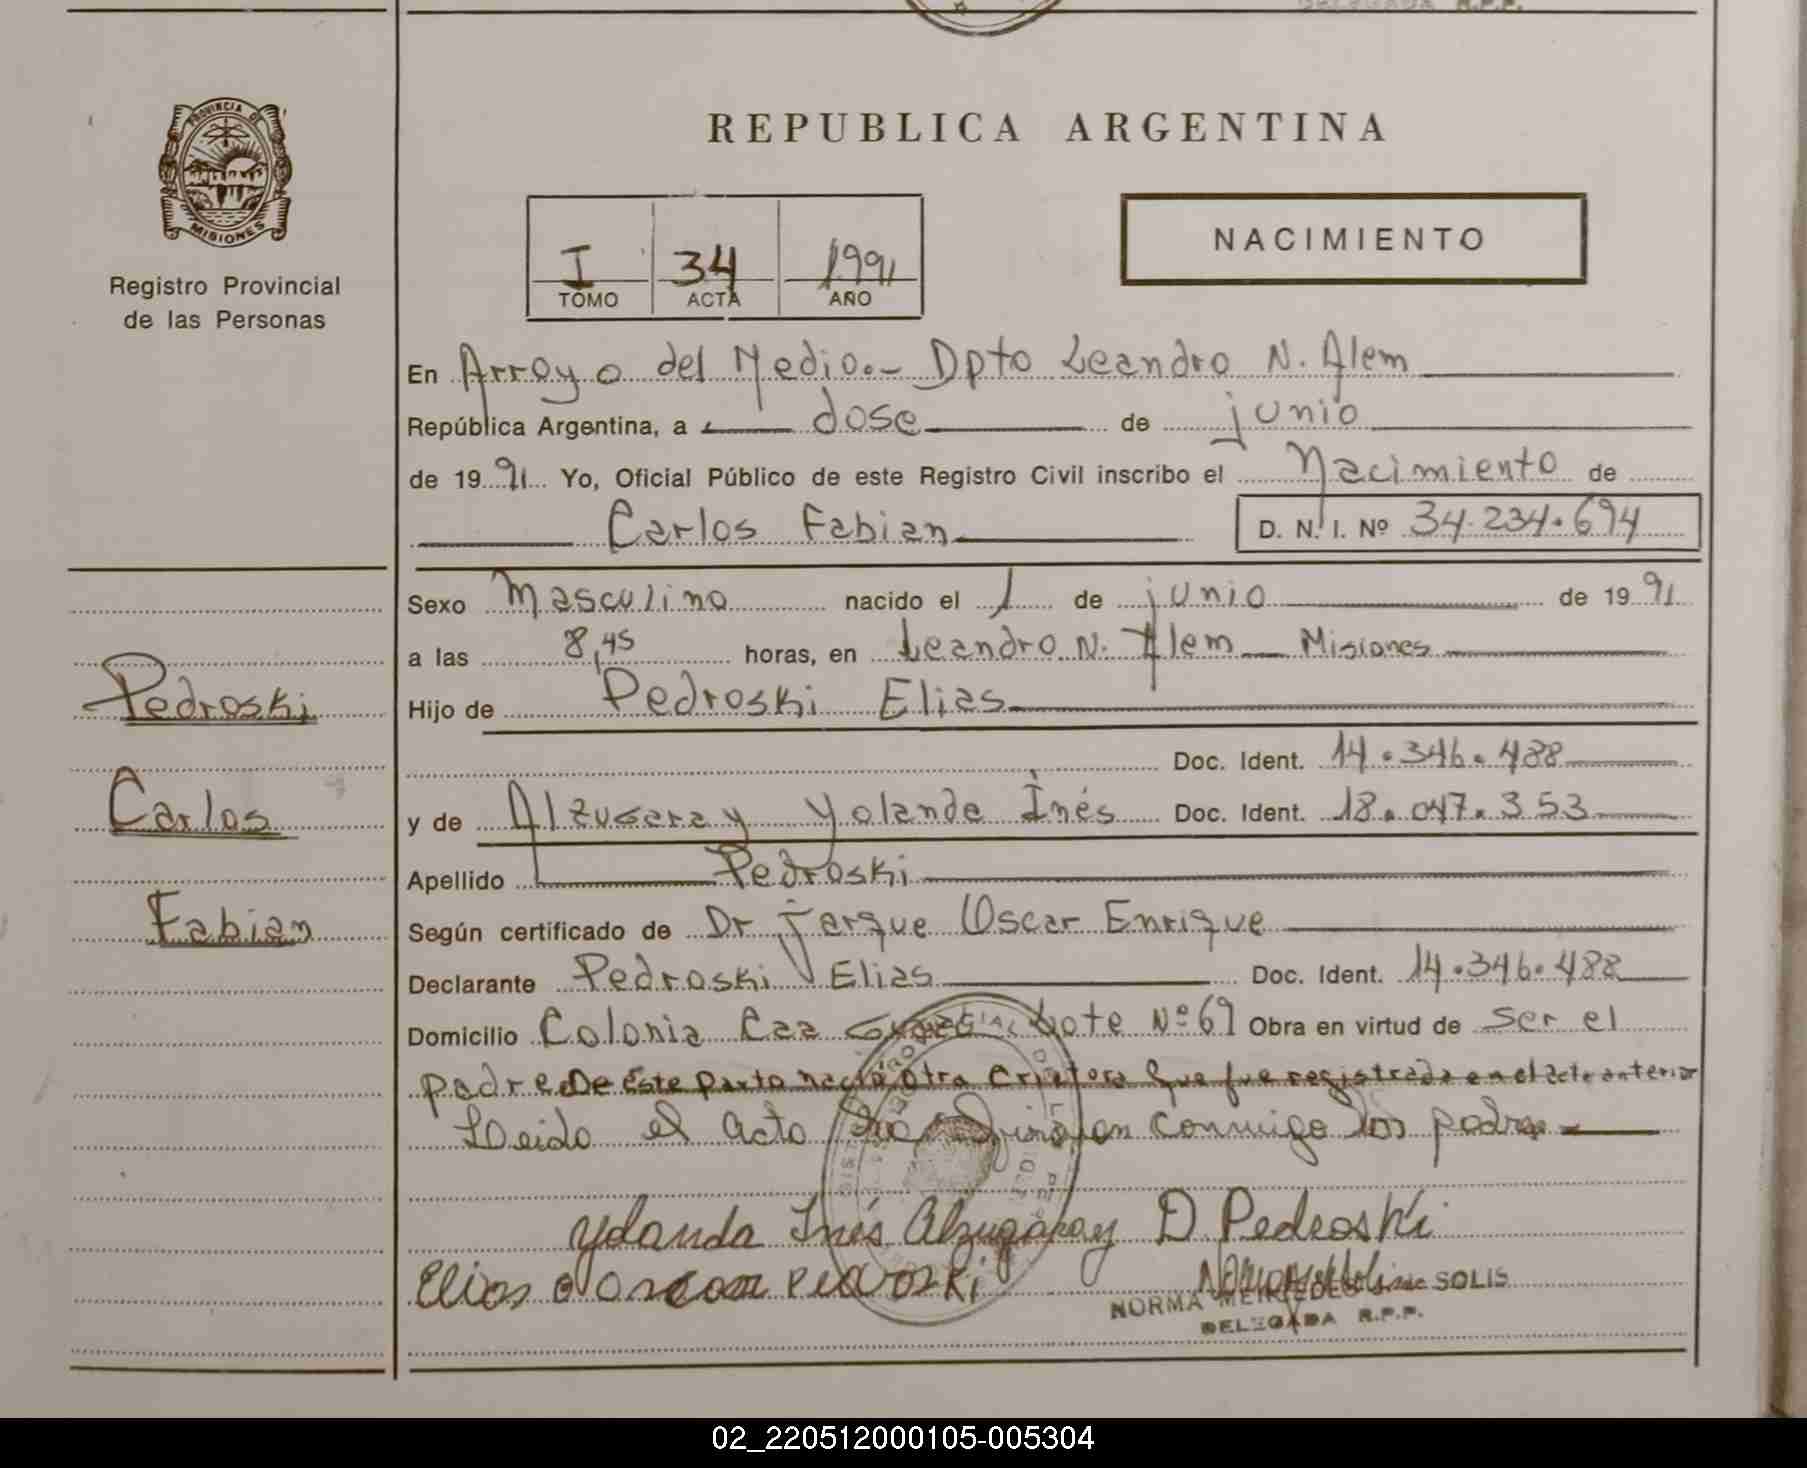 DELEGADA R.P.P.
PROVINCIA DE
MISIONES
Registro Provincial
de las Personas
REPUBLICA ARGENTINA
I 34 1991
TOMO ACTA AÑO
NACIMIENTO
En Arroyo del Medio.- Dpto Leandro N. Alem
República Argentina, a dose de junio
de 1991 Yo, Oficial Público de este Registro Civil inscribo el Nacimiento de
Carlos Fabian D. N. I. Nº 34.234.694
Sexo Masculino nacido el 1 de junio de 1991
a las 8,45 horas, en Leandro N. Alem Misiones
Pedroski
Hijo de Pedroski Elias
Doc. Ident. 14.346.488
Carlos
y de Alzugaray Yolanda Inés Doc. Ident. 18.047.353
Apellido Pedroski
Fabian
Según certificado de Dr Jarque Oscar Enrique
Declarante Pedroski Elias Doc. Ident. 14.346.488
Domicilio Colonia Caa Lote Nº 69 Obra en virtud de ser el
padre De éste parto nació otra criatura que fue registrada en el acta anterior
Leido el acta firman conmigo los padres
Yolanda Inés Alzugaray D Pedroski
Elias
NORMA MERCEDES SOLIS
DELEGADA R.P.P.
02_220512000105-005304